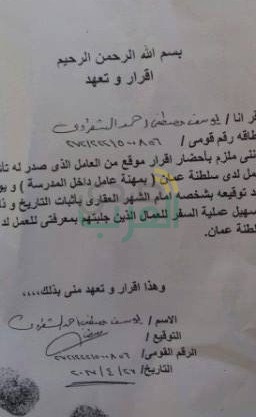 بسم الله الرحمن الرحيم
اقرار و تعهد
قر انا / يوسف مصطفى احمد الشعراوى
طاقه رقم قومى /
ننى ملزم بأحضار اقرار موقع من العامل الذى صدر له تأ
مل لدى سلطنة عمان ( بمهنة عامل داخل المدرسة ) و يو
د توقيعه بشخصه امام الشهر العقارى بأثبات التاريخ و ذ
سهيل عملية السفر للعمال الذين جلبتهم بمعرفتى للعمل لد
طنة عمان.
وهذا اقرار و تعهد منى بذلك،،،،
الاسم / يوسف مصطفى احمد الشعراوى
التوقيع /
الرقم القومى /
التاريخ/